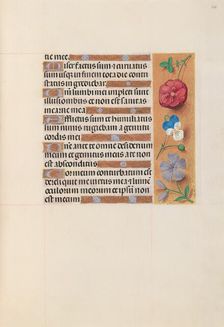 tie mee.
Miser factus sum et curvatus
sum usq; in finem tota die contri
status ingrediebar.
Qm lumbi mei impleti sunt
illusionibus et non est sanitas
in carne mea.
Afflictus sum et humiliatus
sum nimis rugiebam a gemitu
cordis mei.
Dne ante te omne desiderium
meum et gemitus meus a te
non est absconditus.
Cor meum conturbatum est
dereliquit me virtus mea et lumē
oculorum meorum et ipsū non
est mecum.